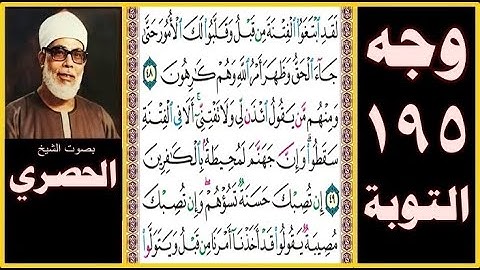 وجه
١٩٥
التوبة
لَقَدِ ٱبْتَغَوُا۟ ٱلْفِتْنَةَ مِن قَبْلُ وَقَلَّبُوا۟ لَكَ ٱلْأُمُورَ حَتَّىٰ
جَآءَ ٱلْحَقُّ وَظَهَرَ أَمْرُ ٱللَّهِ وَهُمْ كَٰرِهُونَ ٤٨
وَمِنْهُم مَّن يَقُولُ ٱئْذَن لِّى وَلَا تَفْتِنِّىٓ ۚ أَلَا فِى ٱلْفِتْنَةِ
سَقَطُوا۟ ۗ وَإِنَّ جَهَنَّمَ لَمُحِيطَةٌۢ بِٱلْكَٰفِرِينَ
٤٩ إِن تُصِبْكَ حَسَنَةٌ تَسُؤْهُمْ ۖ وَإِن تُصِبْكَ
مُصِيبَةٌ يَقُولُوا۟ قَدْ أَخَذْنَآ أَمْرَنَا مِن قَبْلُ وَيَتَوَلَّوا۟
بصوت الشيخ
الحصري